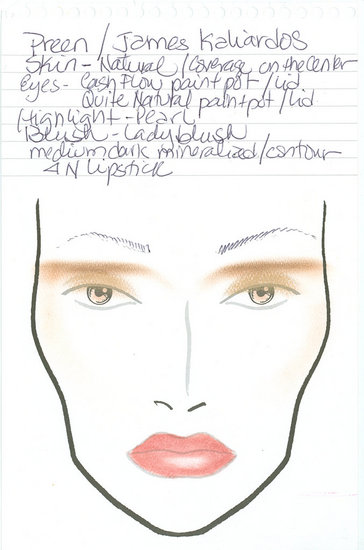 Preen / James Kaliardos
Skin - Natural / Coverage on the Center
Eyes - Cash Flow paint pot / lid
Quite Natural paint pot / lid
Highlight - Pearl
Blush - Ladyblush
medium dark mineralized / contour
4 N lipstick